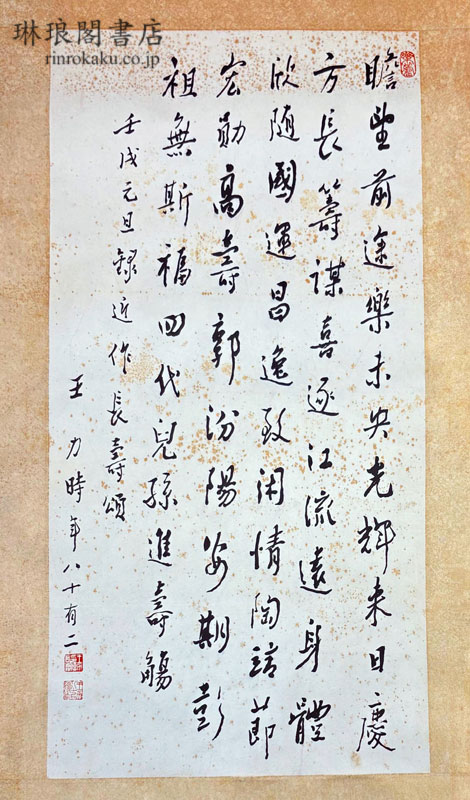 琳琅閣書店
rinrokaku.co.jp
瞻望前途樂未央光輝来日慶
方長籌謀喜逐江流遠身體
欣随國運昌逸致闲情陶靖節
宏勛高壽郭汾陽安期彭
祖無斯福四代兒孫進壽觴
壬戌元旦録近作長壽頌
王力時年八十有二